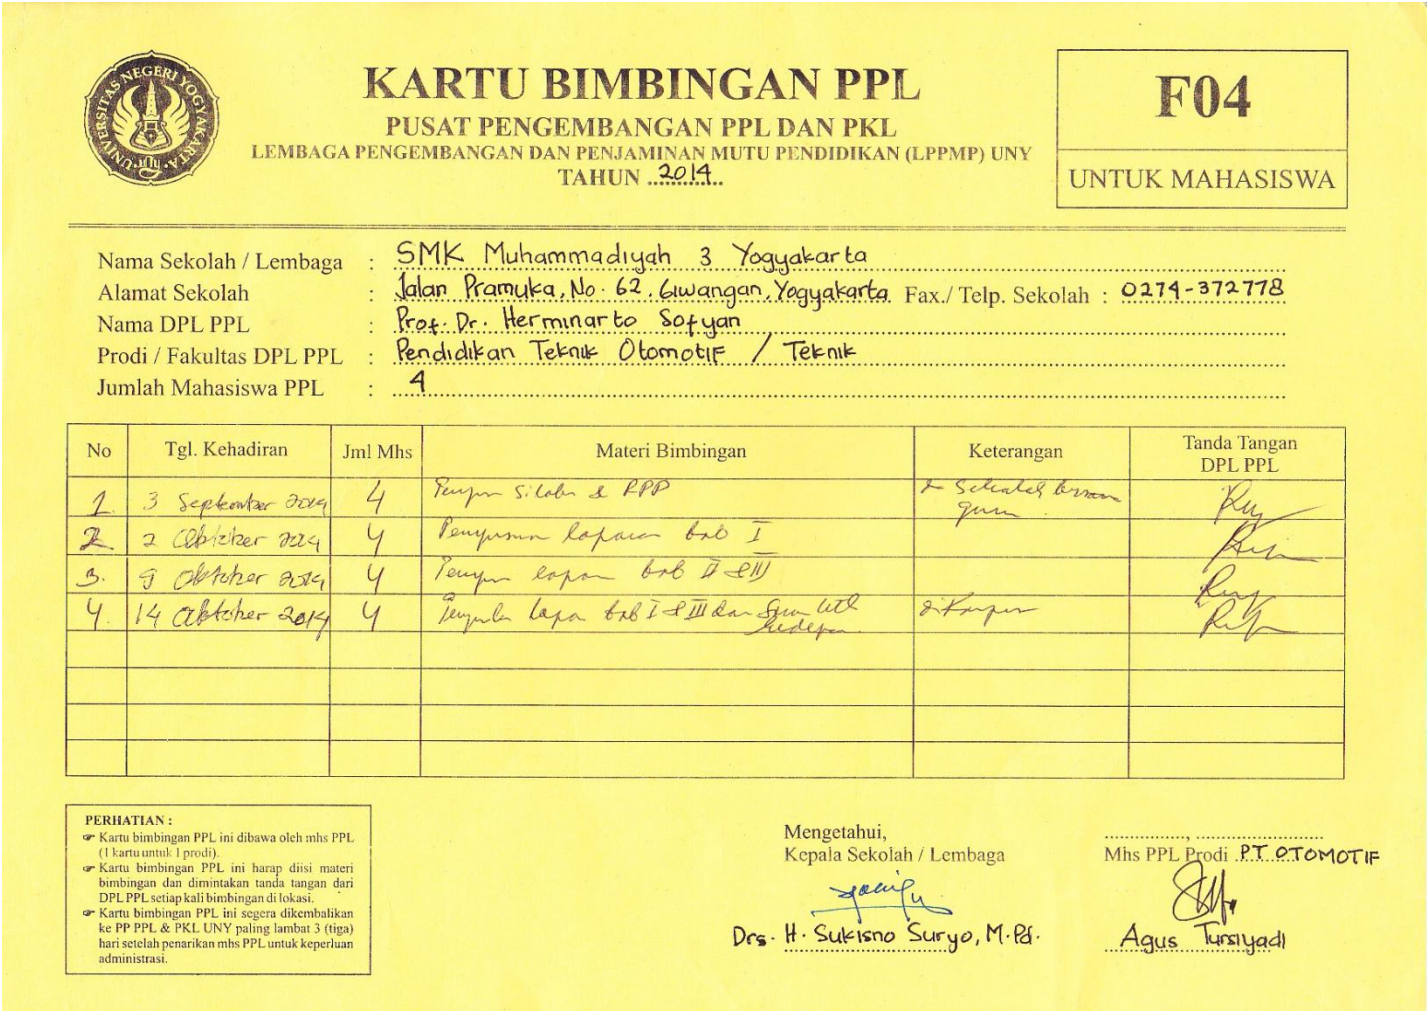 UNIVERSITAS NEGERI YOGYAKARTA
UNY
KARTU BIMBINGAN PPL
PUSAT PENGEMBANGAN PPL DAN PKL
LEMBAGA PENGEMBANGAN DAN PENJAMINAN MUTU PENDIDIKAN (LPPMP) UNY
TAHUN 2014
F04
UNTUK MAHASISWA
Nama Sekolah / Lembaga : SMK Muhammadiyah 3 Yogyakarta
Alamat Sekolah : Jalan Pramuka, No. 62, Giwangan, Yogyakarta Fax./ Telp. Sekolah : 0274-372778
Nama DPL PPL : Prof. Dr. Herminarto Sofyan
Prodi / Fakultas DPL PPL : Pendidikan Teknik Otomotif / Teknik
Jumlah Mahasiswa PPL : 4
No Tgl. Kehadiran Jml Mhs Materi Bimbingan Keterangan Tanda Tangan DPL PPL
1. 3 September 2014 4 & RPP
2. 2 Oktober 2014 4 Penyusunan laporan bab I
3. 9 Oktober 2014 4 bab II & III
4. 14 Oktober 2014 4 bab I & III dan
PERHATIAN :
☞ Kartu bimbingan PPL ini dibawa oleh mhs PPL
(1 kartu untuk 1 prodi).
☞ Kartu bimbingan PPL ini harap diisi materi
bimbingan dan dimintakan tanda tangan dari
DPL PPL setiap kali bimbingan di lokasi.
☞ Kartu bimbingan PPL ini segera dikembalikan
ke PP PPL & PKL UNY paling lambat 3 (tiga)
hari setelah penarikan mhs PPL untuk keperluan
administrasi.
Mengetahui,
Kepala Sekolah / Lembaga
Drs. H. Sukisno Suryo, M.Pd.
..............., ......................
Mhs PPL Prodi PT OTOMOTIF
Agus Tursiyadi